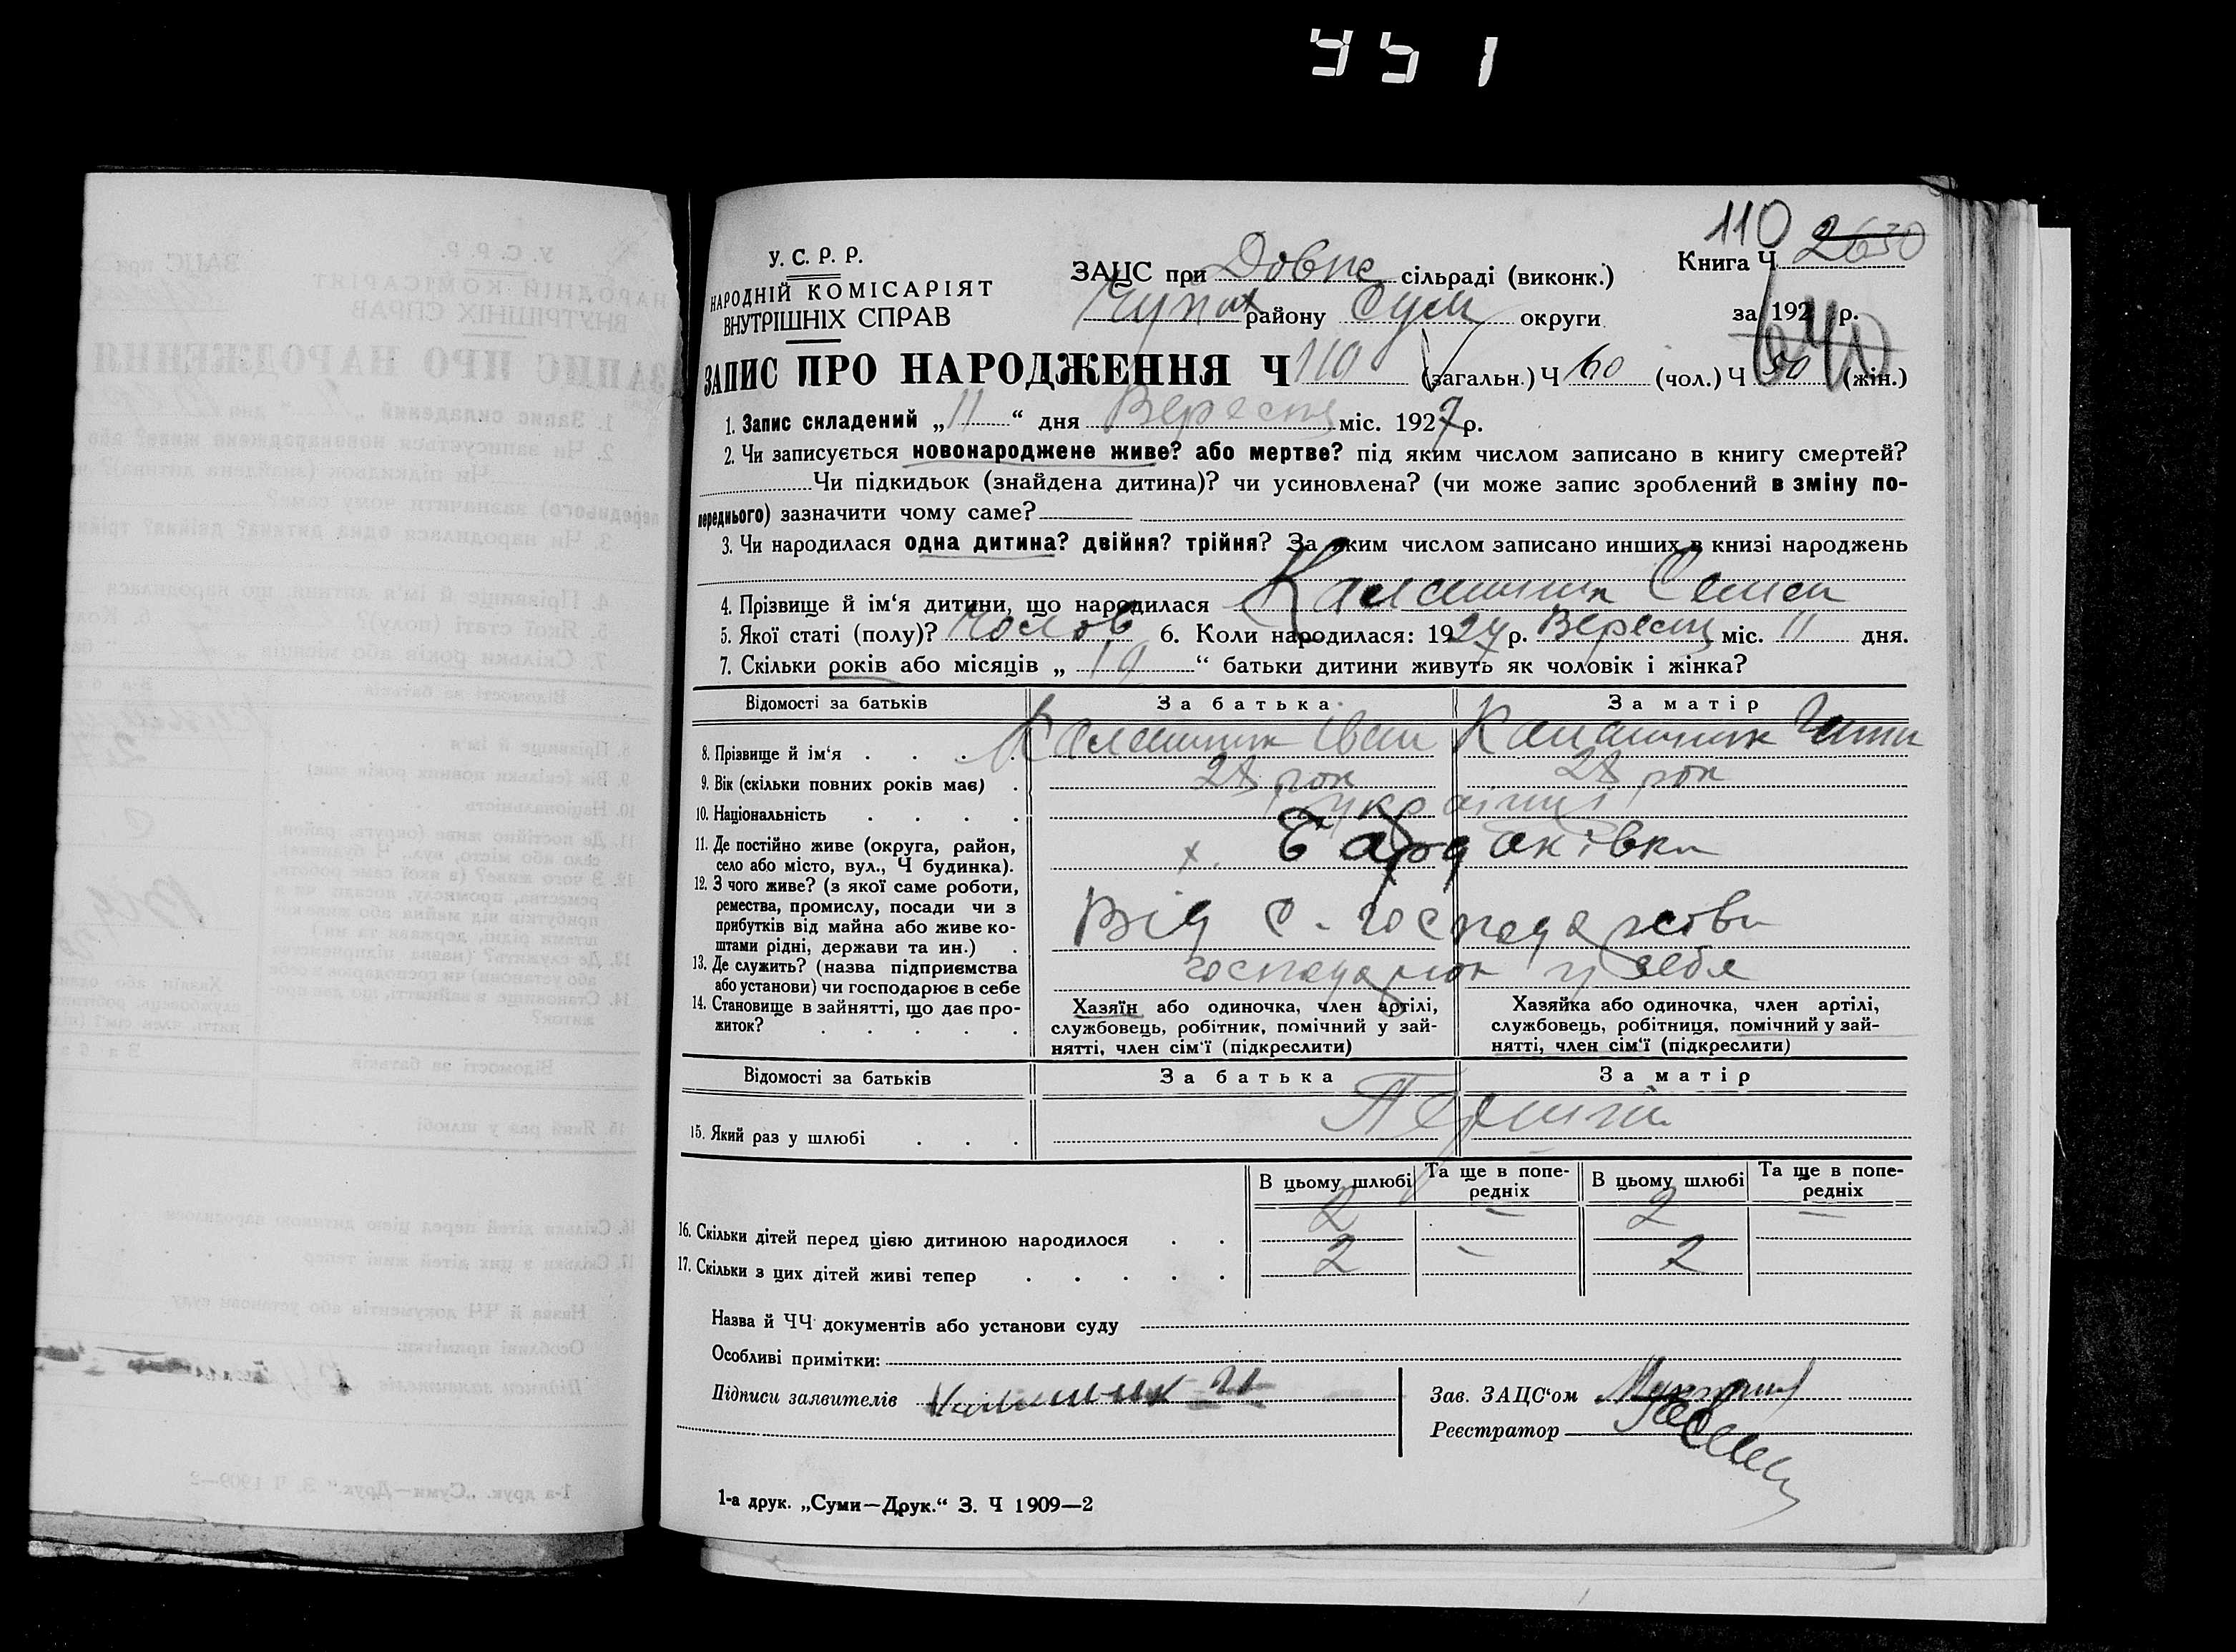 951
110 2630
У. С. Р. Р.
НАРОДНІЙ КОМІСАРІЯТ
ВНУТРІШНІХ СПРАВ
ЗАЦС при сільраді (виконк.)
району Сум округи
Книга Ч
за 192 р.
640
ЗАПИС ПРО НАРОДЖЕННЯ Ч 110 (загальн.) Ч 60 (чол.) Ч 50 (жін.)
1. Запис складений „ 11 “ дня Вересня міс. 1927 р.
2. Чи записується новонароджене живе? або мертве? під яким числом записано в книгу смертей?
Чи підкидьок (знайдена дитина)? чи усиновлена? (чи може запис зроблений в зміну по-
переднього) зазначити чому саме?
3. Чи народилася одна дитина? двійня? трійня? За яким числом записано инших в книзі народжень
4. Прізвище й ім‘я дитини, що народилася Калашник Семен
5. Якої статі (полу)? Чолов 6. Коли народилася: 1927 р. Вересня міс. 11 дня.
7. Скільки років або місяців „ “ батьки дитини живуть як чоловік і жінка?
Відомості за батьків За батька За матір
8. Прізвище й ім‘я Калашник Іван Калашник
9. Вік (скільки повних років має) 28 рок 28 рок
10. Національність українці
11. Де постійно живе (округа, район,
село або місто, вул., Ч будинка). х. Бардаківка
12. З чого живе? (з якої саме роботи,
ремества, промислу, посади чи з
прибутків від майна або живе ко-
штами рідні, держави та ин.) Від с. господарства
13. Де служить? (назва підприємства
або установи) чи господарює в себе у себя
14. Становище в зайнятті, що дає про-
житок?
Хазяїн або одиночка, член артілі,
службовець, робітник, помічний у зай-
нятті, член сім‘ї (підкреслити)
Хазяйка або одиночка, член артілі,
службовець, робітниця, помічний у зай-
нятті, член сім‘ї (підкреслити)
Відомості за батьків За батька За матір
15. Який раз у шлюбі Перший
В цьому шлюбі Та ще в попе-
редніх В цьому шлюбі Та ще в попе-
редніх
16. Скільки дітей перед цією дитиною народилося 2 — 2 —
17. Скільки з цих дітей живі тепер 2 — 2
Назва й ЧЧ документів або установи суду
Особливі примітки:
Підписи заявителів Калашник
Зав. ЗАЦС‘ом
Реєстратор
1-а друк. „Суми—Друк.“ З. Ч 1909—2